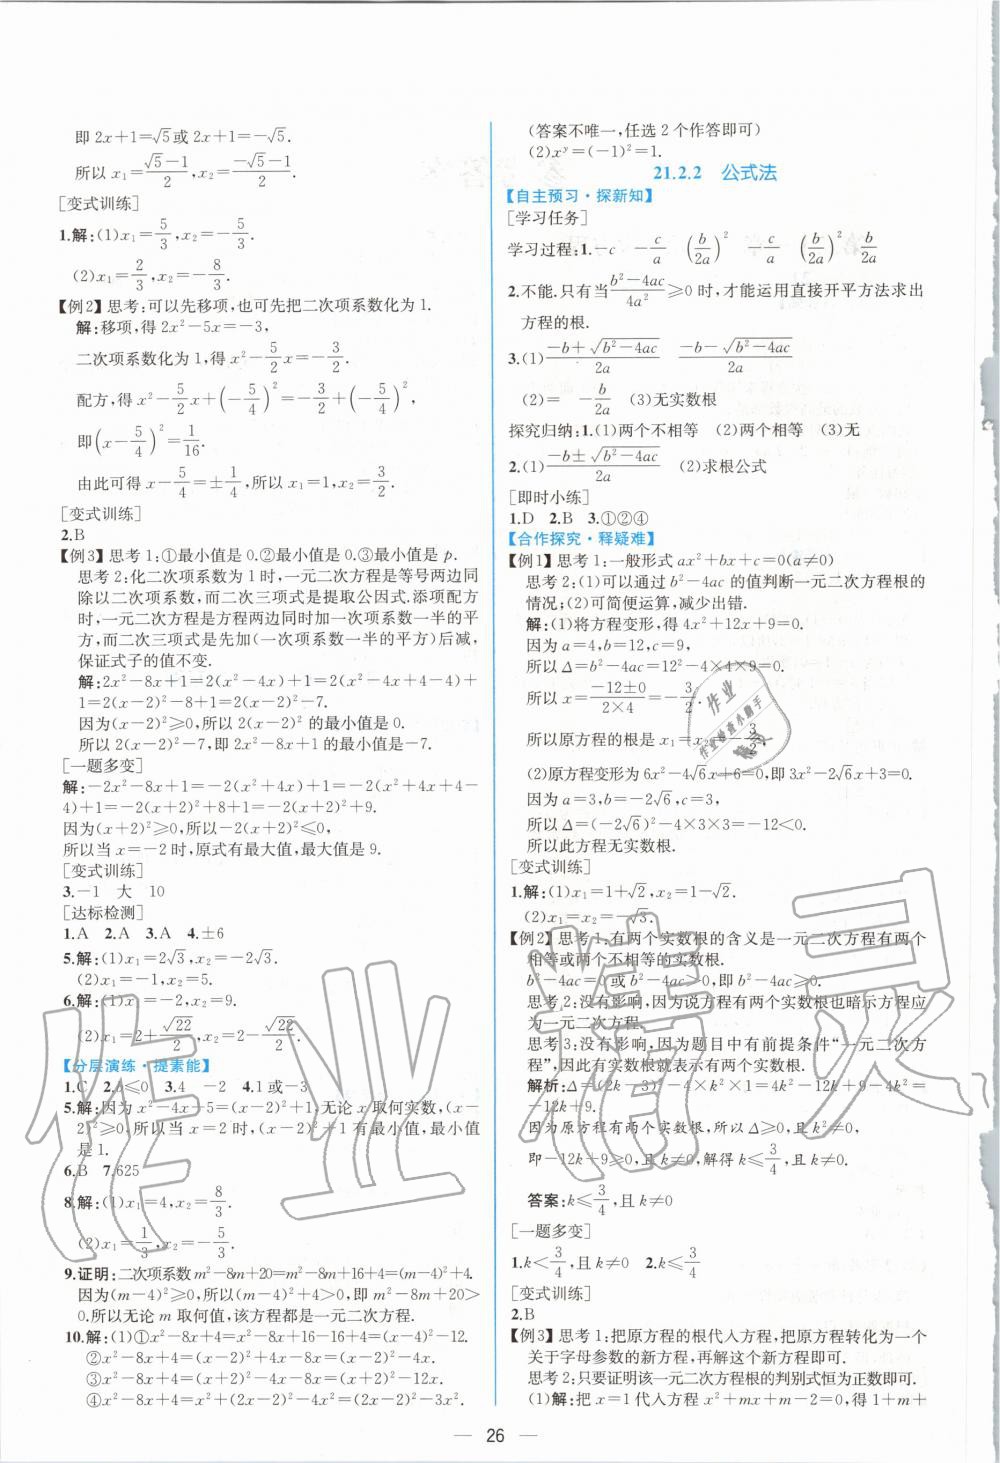 即 2x+1=√5或 2x+1=-√5.
所以 x₁=(√5-1)/2,x₂=(-√5-1)/2.
[变式训练]
1.解:(1)x₁=5/3,x₂=-5/3.
(2)x₁=2/3,x₂=-8/3.
【例2】思考:可以先移项,也可先把二次项系数化为 1.
解:移项,得 2x²-5x=-3,
二次项系数化为 1,得 x²-5/2x=-3/2.
配方,得 x²-5/2x+(-5/4)²=-3/2+(-5/4)²,
即(x-5/4)²=1/16.
由此可得 x-5/4=±1/4,所以 x₁=1,x₂=3/2.
[变式训练]
2.B
【例3】思考 1:①最小值是 0.②最小值是 0.③最小值是 p.
思考 2:化二次项系数为 1 时,一元二次方程是等号两边同
除以二次项系数,而二次三项式是提取公因式.添项配方
时,一元二次方程是方程两边同时加一次项系数一半的平
方,而二次三项式是先加(一次项系数一半的平方)后减,
保证式子的值不变.
解:2x²-8x+1=2(x²-4x)+1=2(x²-4x+4-4)+
1=2(x-2)²-8+1=2(x-2)²-7.
因为(x-2)²≥0,所以 2(x-2)²的最小值是 0.
所以 2(x-2)²-7,即 2x²-8x+1 的最小值是-7.
[一题多变]
解:-2x²-8x+1=-2(x²+4x)+1=-2(x²+4x+4-
4)+1=-2(x+2)²+8+1=-2(x+2)²+9.
因为(x+2)²≥0,所以-2(x+2)²≤0,
所以当 x=-2 时,原式有最大值,最大值是 9.
[变式训练]
3.-1 大 10
[达标检测]
1.A 2.A 3.A 4.±6
5.解:(1)x₁=2√3,x₂=-2√3.
(2)x₁=-1,x₂=5.
6.解:(1)x₁=-2,x₂=9.
(2)x₁=2+√22/2,x₂=2-√22/2.
【分层演练·提素能】
1.C 2.a≤0 3.4 -2 4.1 或-3
5.解:因为 x²-4x+5=(x-2)²+1,无论 x 取何实数,(x-
2)²≥0,所以当 x=2 时,(x-2)²+1 有最小值,最小值
是 1.
6.B 7.625
8.解:(1)x₁=4,x₂=8/3.
(2)x₁=1/3,x₂=-5/3.
9.证明:二次项系数 m²-8m+20=m²-8m+16+4=(m-4)²+4.
因为(m-4)²≥0,所以(m-4)²+4>0,即 m²-8m+20>
0.所以无论 m 取何值,该方程都是一元二次方程.
10.解:(1)①x²-8x+4=x²-8x+16-16+4=(x-4)²-12.
②x²-8x+4=(x-2)²+4x-8x=(x-2)²-4x.
③x²-8x+4=(x+2)²-4x-8x=(x+2)²-12x.
④x²-8x+4=x²+(2x-2)²-4x²=(2x-2)²-3x².
(答案不唯一,任选 2 个作答即可)
(2)xʸ=(-1)²=1.
21.2.2 公式法
【自主预习·探新知】
[学习任务]
学习过程:1.-c -c/a (b/2a)² -c/a (b/2a)² b/2a
2.不能.只有当(b²-4ac)/4a²≥0 时,才能运用直接开平方法求出
方程的根.
3.(1)(-b+√(b²-4ac))/2a (-b-√(b²-4ac))/2a
(2)= -b/2a (3)无实数根
探究归纳:1.(1)两个不相等 (2)两个相等 (3)无
2.(1)(-b±√(b²-4ac))/2a (2)求根公式
[即时小练]
1.D 2.B 3.①②④
【合作探究·释疑难】
【例1】思考 1:一般形式 ax²+bx+c=0(a≠0)
思考 2:(1)可以通过 b²-4ac 的值判断一元二次方程根的
情况;(2)可简便运算,减少出错.
解:(1)将方程变形,得 4x²+12x+9=0.
因为 a=4,b=12,c=9,
所以 Δ=b²-4ac=12²-4×4×9=0.
所以 x=(-12±0)/(2×4)=-3/2.
所以原方程的根是 x₁=x₂=-3/2.
(2)原方程变形为 6x²-4√6x+6=0,即 3x²-2√6x+3=0.
因为 a=3,b=-2√6,c=3,
所以 Δ=(-2√6)²-4×3×3=-12<0.
所以此方程无实数根.
[变式训练]
1.解:(1)x₁=1+√2,x₂=1-√2.
(2)x₁=x₂=-√3.
【例2】思考 1:有两个实数根的含义是一元二次方程有两个
相等或两个不相等的实数根.
b²-4ac=0或 b²-4ac>0,即 b²-4ac≥0.
思考 2:没有影响,因为说方程有两个实数根也暗示方程应
为一元二次方程.
思考 3:没有影响,因为题目中有前提条件“一元二次方
程”,因此有实数根就表示有两个实数根.
解析:Δ=(2k-3)²-4×k²=4k²-12k+9-4k²=
-12k+9.
因为原方程有两个实数根,所以 Δ≥0,且 k²≠0,
即-12k+9≥0,且 k≠0,解得 k≤3/4,且 k≠0.
答案:k≤3/4,且 k≠0
[一题多变]
1.k<3/4,且 k≠0 2.k≤3/4
[变式训练]
2.B
【例3】思考 1:把原方程的根代入方程,把原方程转化为一个
关于字母参数的新方程,再解这个新方程即可.
思考 2:只要证明该一元二次方程根的判别式恒为正数即可.
(1)解:把 x=1 代入方程 x²+mx+m-2=0,得 1+m+
— 26 —
作业精灵
作业
作业检查小助手
精灵